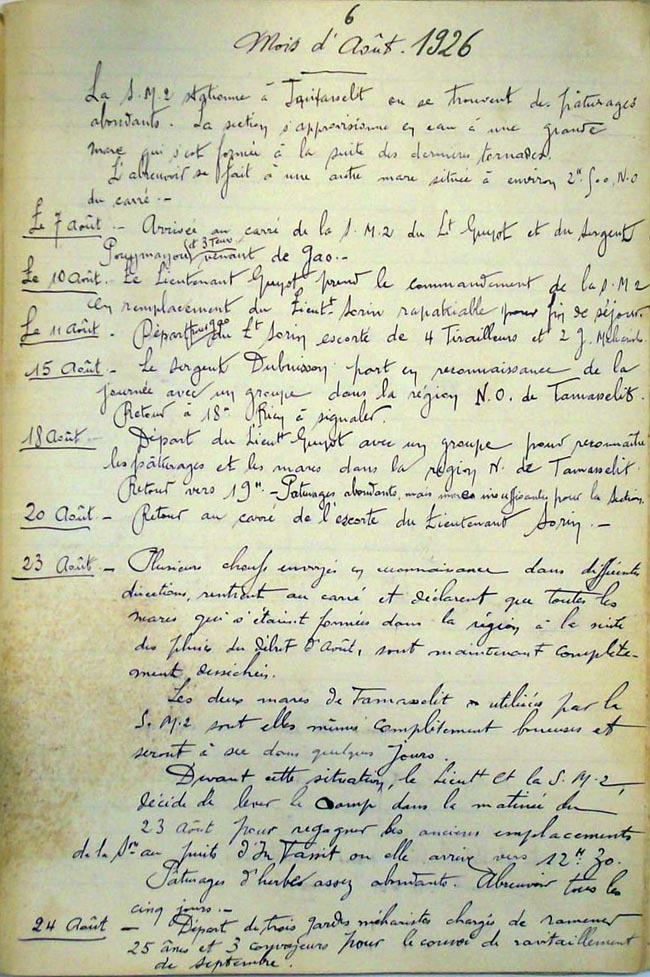 6
Mois d'Août. 1926
La S.M.2 stationne à où se trouvent des pâturages
abondants. La section s'approvisionne en eau à une grande
mare qui s'est formée à la suite des dernières tornades.
L'abreuvoir se fait à une autre mare située à environ N.O
du carré. -
Le 7 Août. - Arrivée au carré de la S.M.2 du Lt Guyot et du Sergent
et 3
venant de Gao. -
Le 10 Août. - Le Lieutenant Guyot prend le commandement de la S.M2
en remplacement du Lieutt Sorin rapatriable pour fin de séjour.
Le 11 Août. - Départ pour Gao du Lt Sorin escorte de 4 Tirailleurs et 2 g.
15 Août - Le Sergent Dubuisson part en reconnaissance de la
journée avec un groupe dans la région N.O. de Tamasselit.
Retour à 18H Rien à signaler.
18 Août - Départ du Lieutt Guyot avec un groupe pour reconnaître
les pâturages et les mares dans la région N. de Tamasselit.
Retour vers 19H. - Paturages abondants, mais mares insuffisantes pour la section.
20 Août - Retour au carré de l'escorte du Lieutenant Sorin. -
23 Août. - Plusieurs choufs envoyés en reconnaissance dans différentes
directions, rentrent au carré et déclarent que toutes les
mares qui s'étaient formées dans la région à la suite
des pluies du début d'Août, sont maintenant complète-
ment desséchées.
Les deux mares de Tamasselit utilisées par la
S.M.2 sont elles mêmes complètement boueuses et
seront à sec dans quelques jours.
Devant cette situation, le Lieutt Ct la S.M.2,
décide de lever le camp dans la matinée du
23 Août pour regagner les anciens emplacements
de la Son au puits d'In Tassit où elle arrive vers 12H 30.
Pâturages d'herbes assez abondants. Abreuvoir tous les
cinq jours. -
24 Août - Départ de trois gardes méharistes chargés de ramener
25 ânes et 3 convoyeurs pour le convoi de ravitaillement
de septembre.